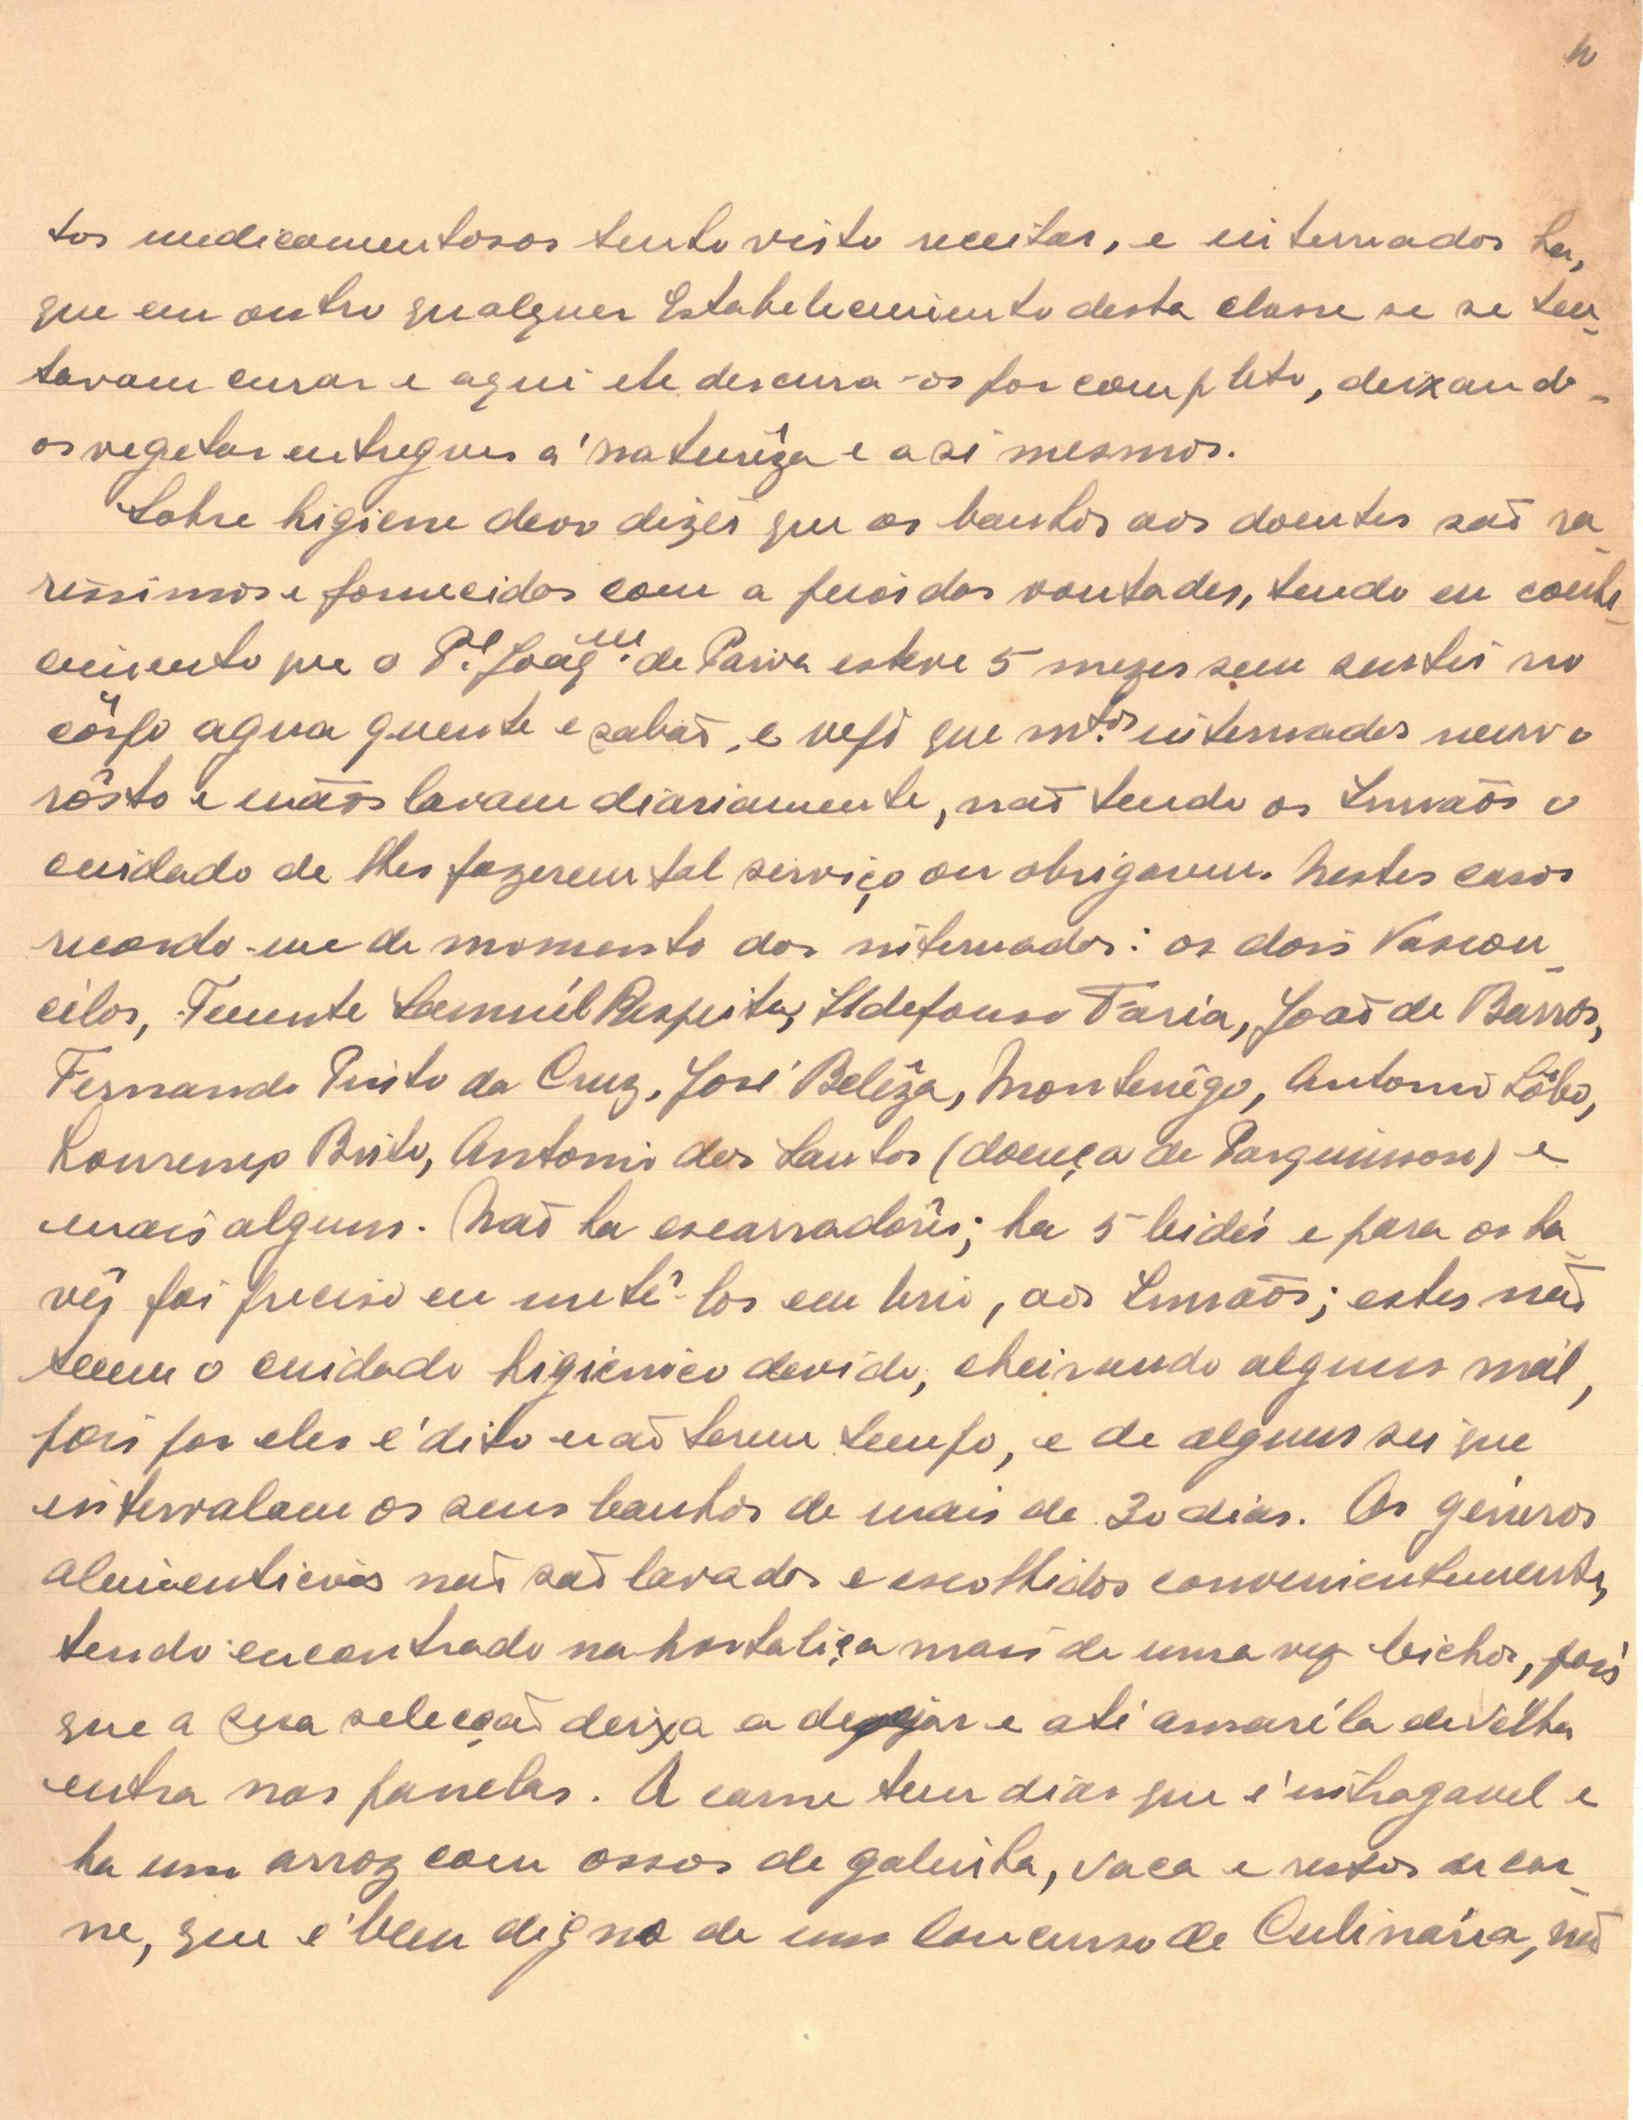 tos medicamentosos tenho visto receitar, e internados ha,
que em outro qualquer Estabelecimento desta classe se se ten-
tavam curar e aqui ele descura-os por completo, deixando-
os vegetar entregues á naturêza e a si mesmos.
Sobre higiene devo dizêr que os banhos aos doentes saõ ra-
rissimos e fornecidos com a peior das vontades, tendo eu conhe-
cimento que o P.e Joaq.m de Paiva esteve 5 mezes sem sentir no
côrpo agua quente e sabaõ, e vejo que m.tos internados nem o
rôsto e mãos lavam diariamente, naõ tendo os Irmaõs o
cuidado de lhes fazerem tal serviço ou obrigarem. Nestes casos
recordo-me de momento dos internados: os dois Vascon-
célos, Tenente Samuél Respeita, Ildefonso Faria, Joaõ de Barros,
Fernando Pinto da Cruz, José Belêza, Montenêgo, Antonio Lôbo,
Lourenço Brito, Antonio dos Santos (doença de Parquinson) e
mais alguns. Naõ ha escarradôres; ha 5 bidés e para os ha-
vêr foi preciso eu metê-los em brio, aos Irmaõs; estes naõ
teem o cuidado higienico devido, cheirando alguns mál,
pois por eles é dito naõ terem tempo, e de alguns sei que
intervalam os seus banhos de mais de 30 dias. Os géneros
alimenticios naõ saõ lavados e escolhidos convenientemente,
tendo encontrado na hortaliça mais de uma vez bichos, pois
que a sua selecçaõ deixa a desejar e até amaréla de vélha
entra nas panelas. A carne tem dias que é intragavel e
ha um arroz com ossos de galinha, vaca e restos de car-
ne, que é bem digno de um Concurso de Culinária, naõ